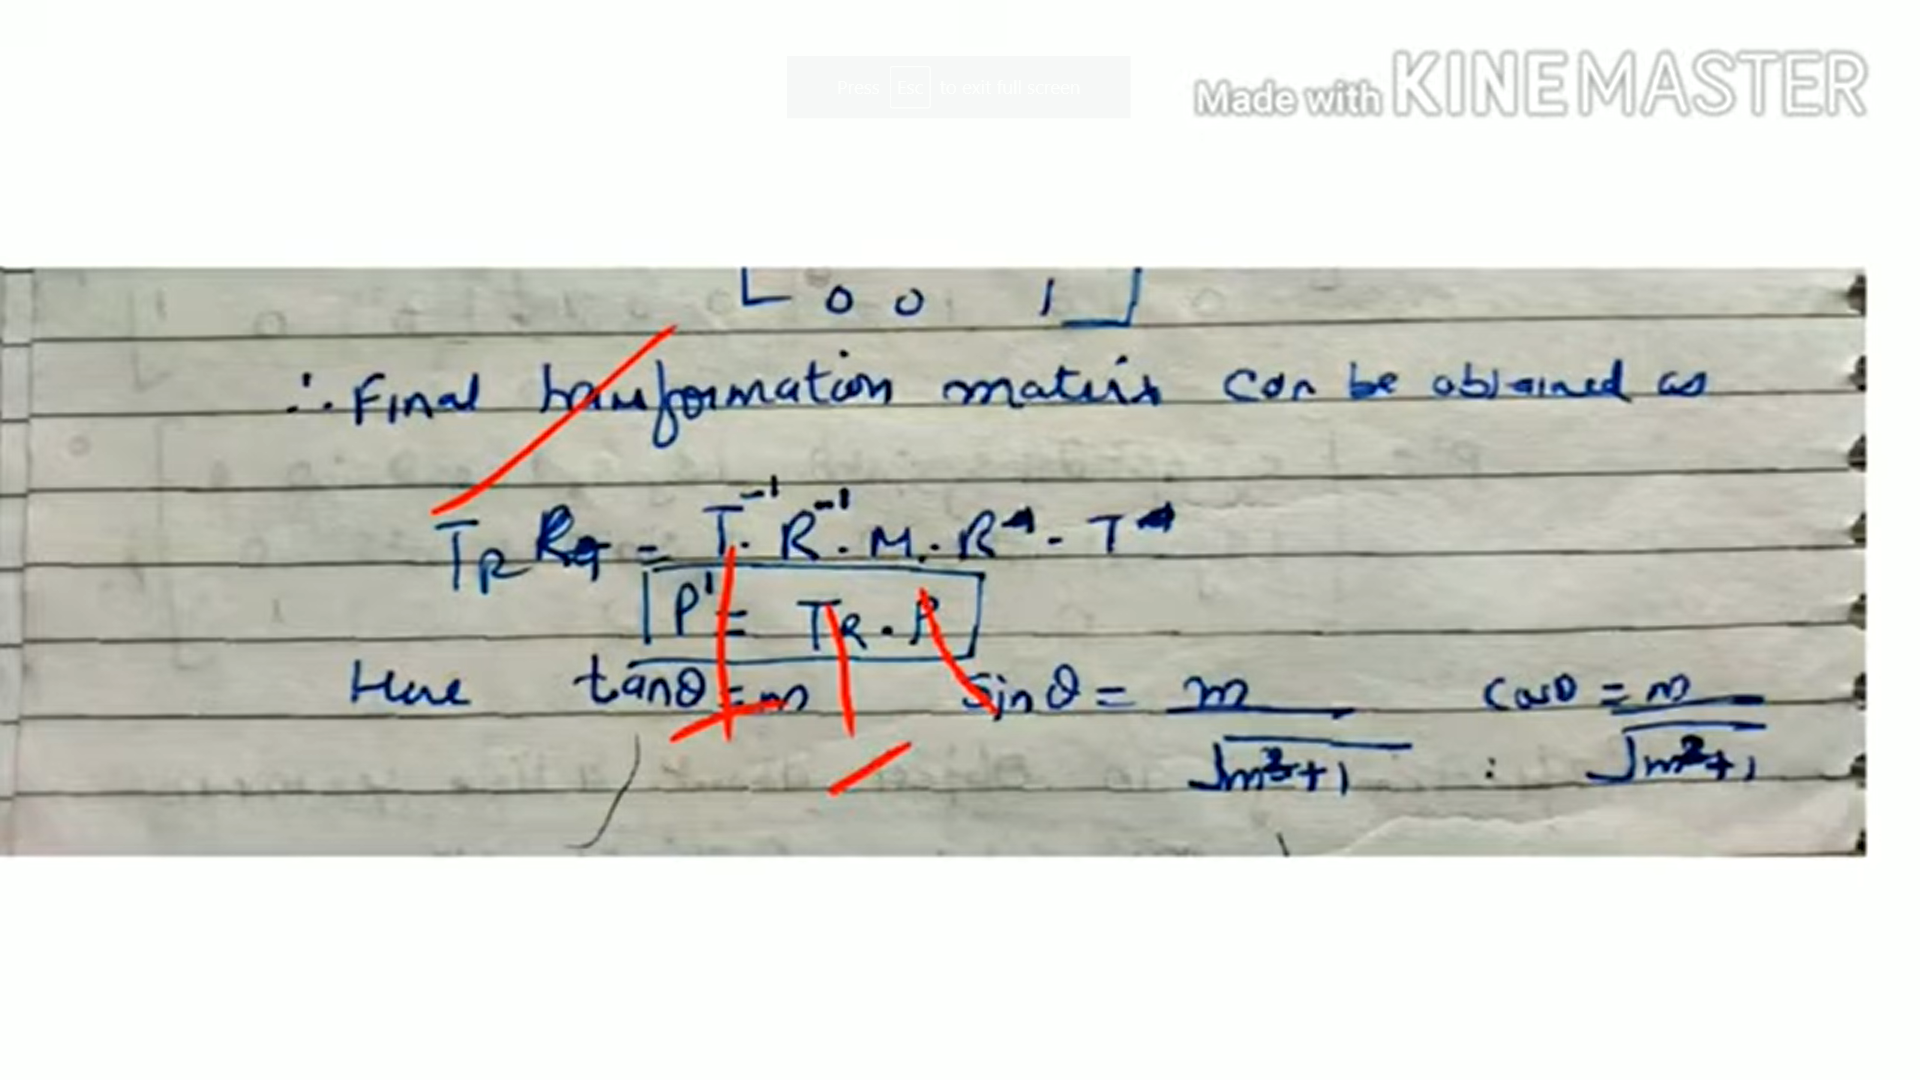 Press Esc to exit full screen
Made with KINEMASTER
0 0 1
∴ Final transformation matrix can be obtained as
TR = T⁻¹ R⁻¹ . M . R . T
P' = TR . P
Here tanθ = m sinθ = m / √m²+1 : cosθ = m / √m²+1